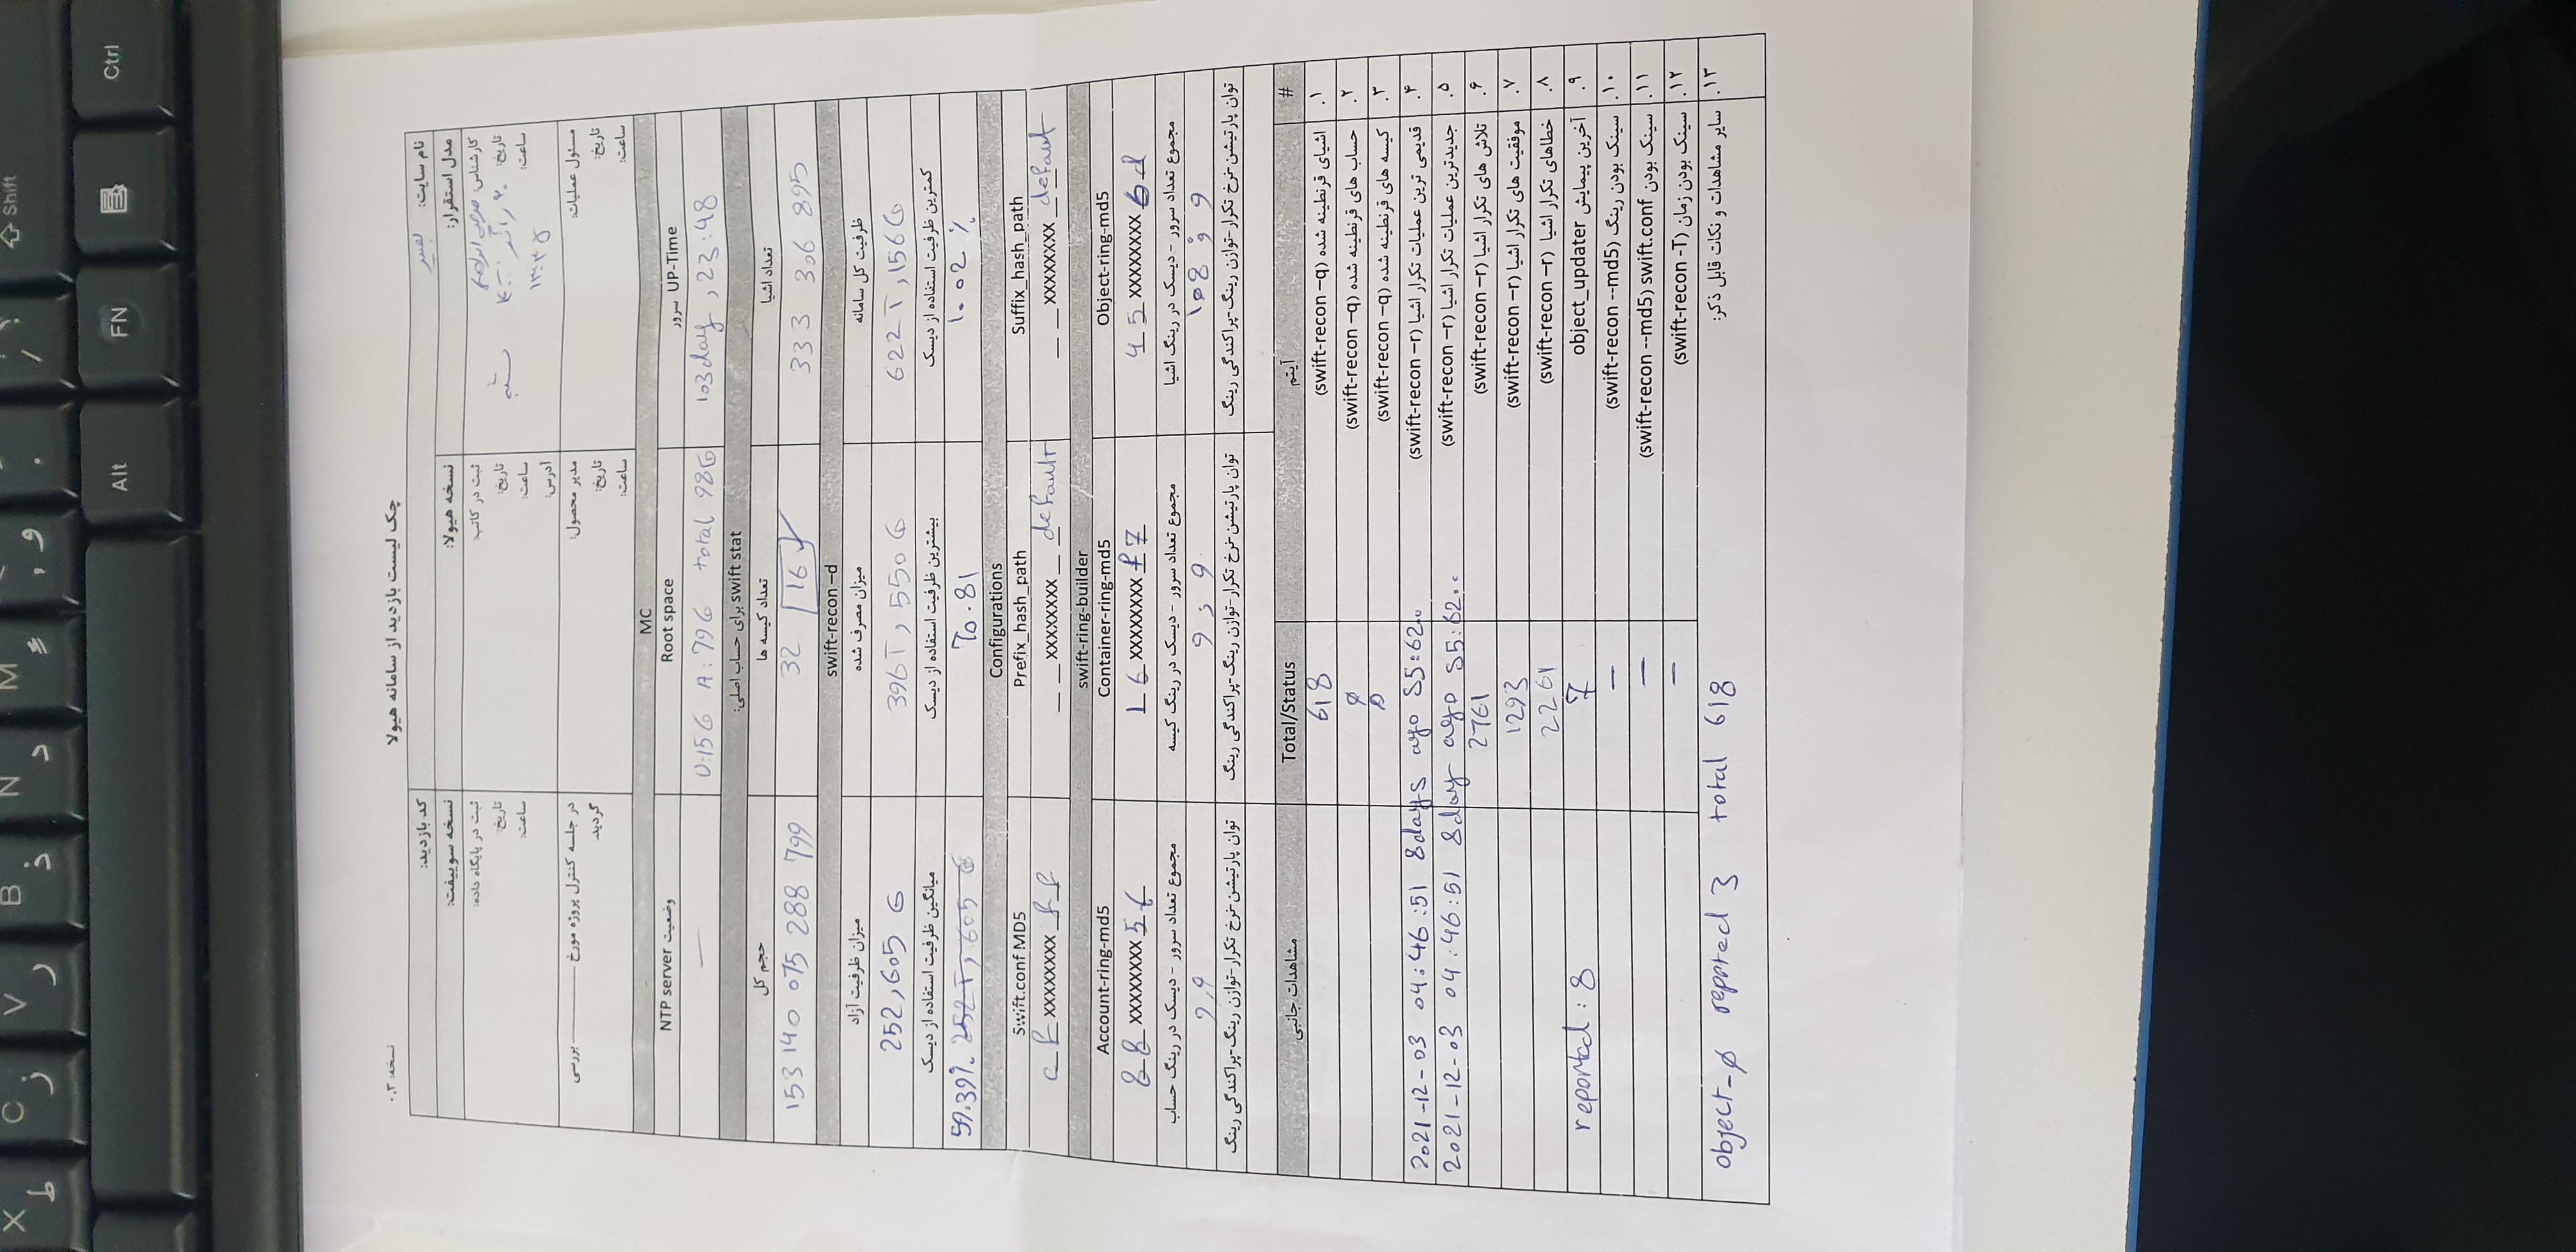 نسخه: ۰.۳
چک لیست بازدید از سامانه هیولا
نام سایت:
کد بازدید:
مدل استقرار:
نسخه هیولا:
نسخه سوییفت:
کارشناس:
تاریخ:
ساعت: ۱۳:۳۵
ثبت در کاتب:
تاریخ:
ساعت:
آدرس:
ثبت در پایگاه داده:
تاریخ:
ساعت:
مسئول عملیات:
تاریخ:
ساعت:
مدیر محصول:
تاریخ:
ساعت:
در جلسه کنترل پروژه مورخ ــــــــــ بررسی گردید.
MC
سرور UP-Time
Root space
وضعیت NTP server
103day, 23:48
U:15G A:79G total 98G
—
swift stat برای حساب اصلی:
تعداد اشیا
تعداد کیسه ها
حجم کل
333 306 895
32 16
153 140 075 288 799
swift-recon –d
ظرفیت کل سامانه
میزان مصرف شده
میزان ظرفیت آزاد
622T,156G
396T,550G
252,605 G
کمترین ظرفیت استفاده از دیسک
بیشترین ظرفیت استفاده از دیسک
میانگین ظرفیت استفاده از دیسک
1.02 %
70.81
59.39% 252T,605 G
Configurations
Suffix_hash_path
Prefix_hash_path
Swift.conf MD5
_ _ xxxxxxxx _ default
_ _ xxxxxxxx _ default
c f xxxxxxxx f f
swift-ring-builder
Object-ring-md5
Container-ring-md5
Account-ring-md5
4 5 xxxxxxxx 6 d
1 6 xxxxxxxx f 7
8 8 xxxxxxxx 5 f
مجموع تعداد سرور - دیسک در رینگ اشیا
مجموع تعداد سرور - دیسک در رینگ کیسه
مجموع تعداد سرور - دیسک در رینگ حساب
108 , 9
9 , 9
9,9
توان پارتیشن-نرخ تکرار-توازن رینگ-پراکندگی رینگ
توان پارتیشن-نرخ تکرار-توازن رینگ-پراکندگی رینگ
توان پارتیشن-نرخ تکرار-توازن رینگ-پراکندگی رینگ
# آیتم Total/Status مشاهدات جانبی
۱. اشیای قرنطینه شده (swift-recon –q) 618
۲. حساب های قرنطینه شده (swift-recon –q) ø
۳. کیسه های قرنطینه شده (swift-recon –q) ø
۴. قدیمی ترین عملیات تکرار اشیا (swift-recon –r) 2021-12-03 04:46:51 8days ago
۵. جدیدترین عملیات تکرار اشیا (swift-recon –r) 2021-12-03 04:46:51 8day ago
۶. تلاش های تکرار اشیا (swift-recon –r) 2761
۷. موفقیت های تکرار اشیا (swift-recon –r) 1293
۸. خطاهای تکرار اشیا (swift-recon –r) 2261
۹. آخرین پیمایش object_updater 7 reported: 8
۱۰. سینک بودن رینگ (swift-recon --md5) —
۱۱. سینک بودن swift.conf (swift-recon --md5) —
۱۲. سینک بودن زمان (swift-recon -T) —
۱۳. سایر مشاهدات و نکات قابل ذکر:
object-ø reported 3 total 618
Shift
Ctrl
FN
Alt
M
N
B
V
C
X